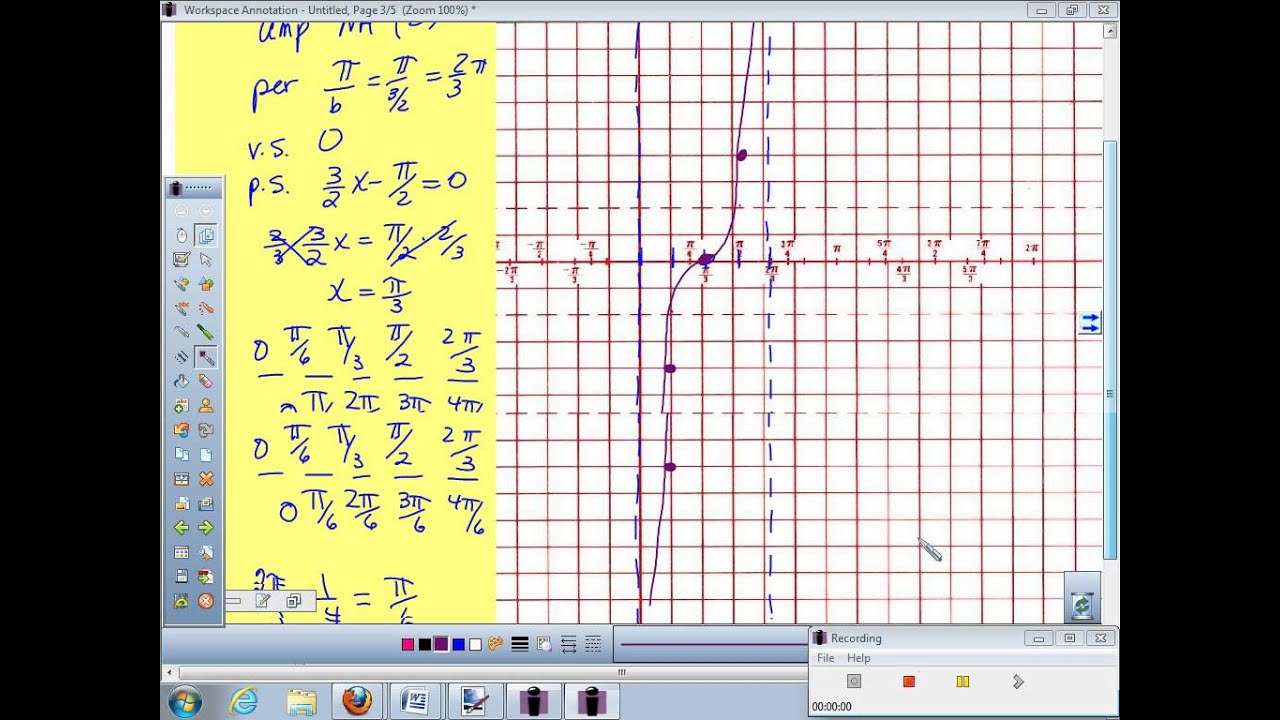 Workspace Annotation - Untitled, Page 3/5 (Zoom 100%) *
amp NA (2)
per π/b = π/3/2 = 2/3 π
v.s. 0
p.s. 3/2 x - π/2 = 0
2/3 3/2 x = π/2 · 2/3
x = π/3
0 π/6 π/3 π/2 2π/3
π 2π 3π 4π
0 π/6 π/3 π/2 2π/3
0 π/6 2π/6 3π/6 4π/6
1/4 = π/6
-π/2 -π/4 π/4 π/2 3π/4 π 5π/4 3π/2 7π/4 2π
-2π/3 -π/3 π/3 2π/3 4π/3 5π/3
Recording
File Help
00:00:00